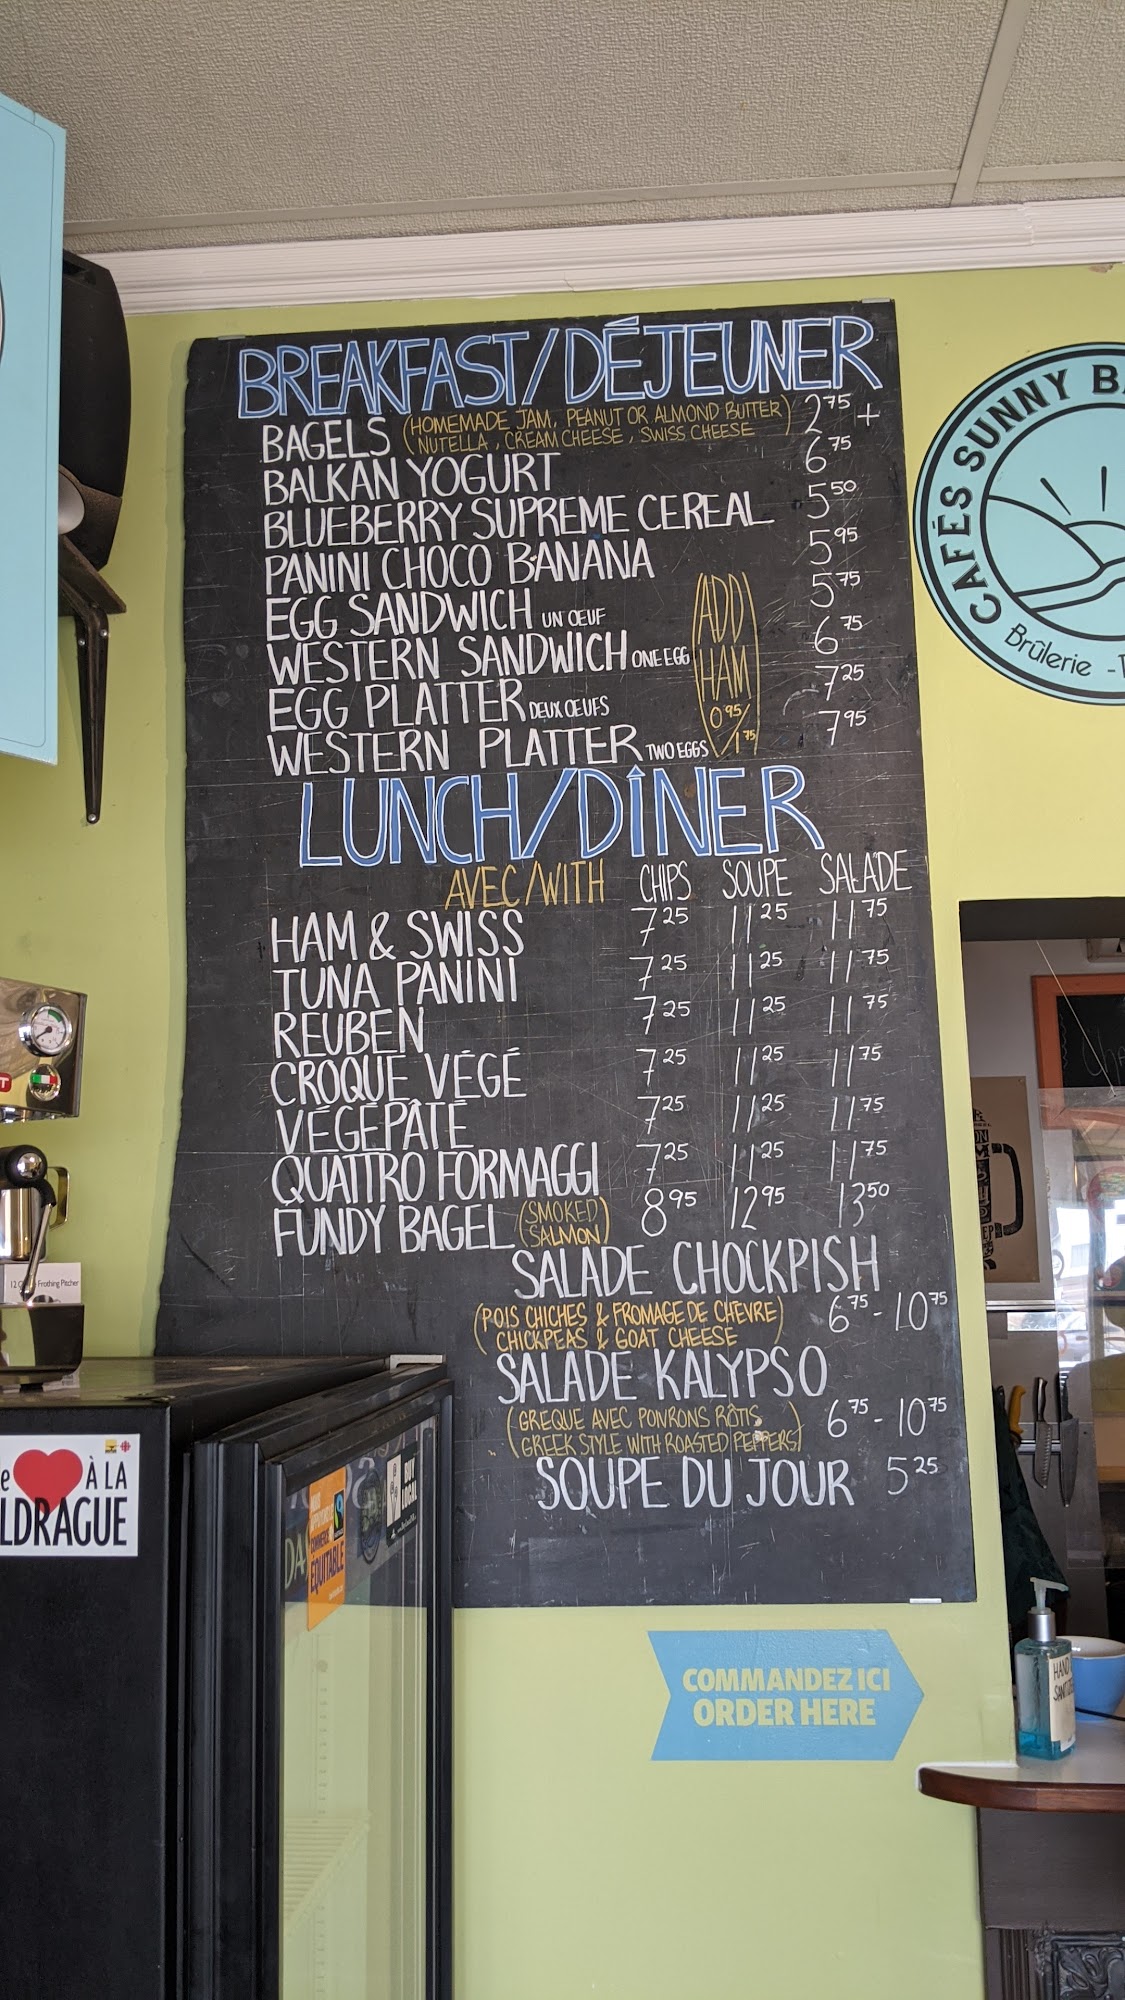 BREAKFAST/DÉJEUNER
BAGELS (HOMEMADE JAM, PEANUT OR ALMOND BUTTER) 2.75 +
NUTELLA, CREAM CHEESE, SWISS CHEESE
BALKAN YOGURT 6.75
BLUEBERRY SUPREME CEREAL 5.50
PANINI CHOCO BANANA 5.95
EGG SANDWICH UN OEUF 5.75
WESTERN SANDWICH ONE EGG 6.75
EGG PLATTER DEUX OEUFS 7.25
WESTERN PLATTER TWO EGGS 7.95
ADD
HAM
0.95/1.75
LUNCH/DÎNER
AVEC/WITH CHIPS SOUPE SALADE
HAM & SWISS 7.25 11.25 11.75
TUNA PANINI 7.25 11.25 11.75
REUBEN 7.25 11.25 11.75
CROQUE VÉGÉ 7.25 11.25 11.75
VÉGÉPÂTÉ 7.25 11.25 11.75
QUATTRO FORMAGGI 7.25 11.25 11.75
FUNDY BAGEL (SMOKED SALMON) 8.95 12.95 13.50
SALADE CHOCKPISH
(POIS CHICHES & FROMAGE DE CHEVRE) 6.75 - 10.75
CHICKPEAS & GOAT CHEESE
SALADE KALYPSO
(GREQUE AVEC PONRONS RÔTIS 6.75 - 10.75
GREEK STYLE WITH ROASTED PEPPERS)
SOUPE DU JOUR 5.25
CAFÉS SUNNY
Brûlerie
12 Frothing Pitcher
À LA
LDRAGUE
ÉQUITABLE
COMMANDEZ ICI
ORDER HERE
HAND